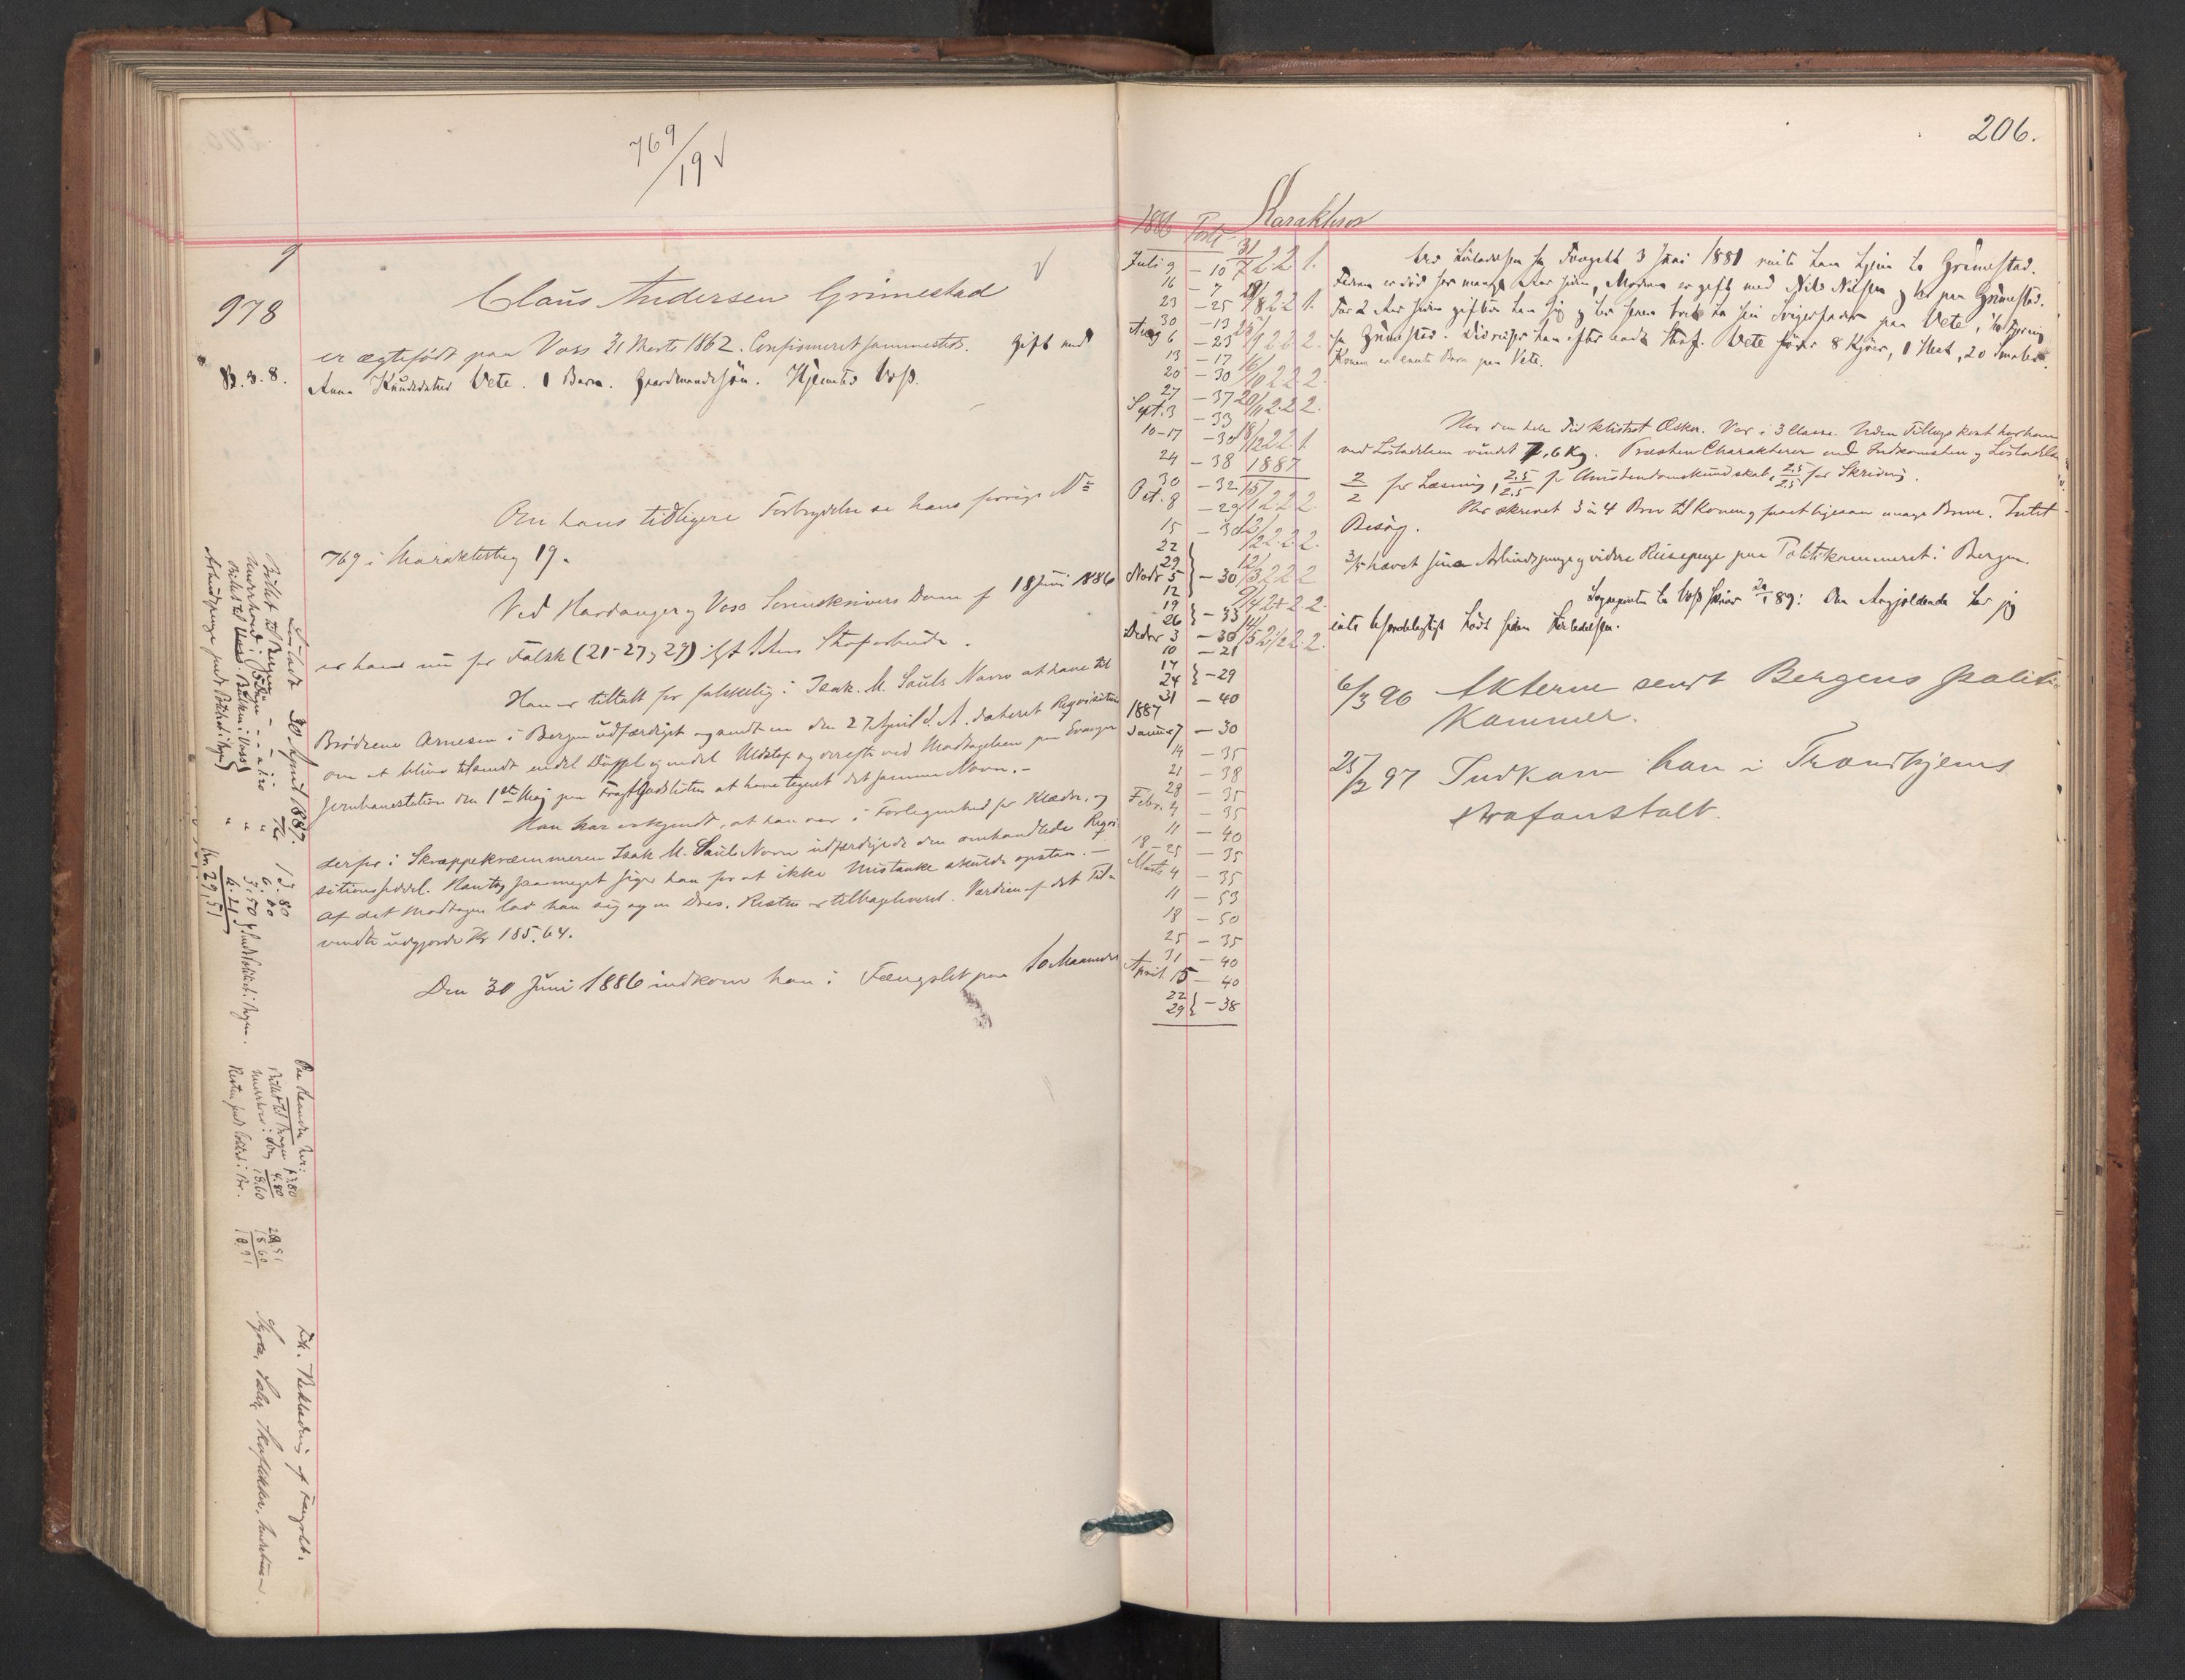 769/19 √
9
978
Claus Andersen Grimestad √
er ægtefödt paa Voss 21 Marts 1862. Confirmeret sammesteds. Gift med
B. 3. 8.
Anna Knudsdatter Vete. 1 Barn. Gaardmandssön. Hjemsted Voss.
Om hans tidligere Forbrydelse se hans forrige No
769 i Karakterbog 19.
Ved Hardanger og Voss Sorenskrivers Dom af 18 Juni 1886
er han nu for Falsk (21-27, 29) Strafarbeide.
Han er tiltalt for falskelig i Isak M. Sauls Navn at have til
Brödrene Arnesen i Bergen udfærdiget og sendt en den 27 April d. A. dateret Reqvisition
om at blive tilsendt endel Düffel og endel Uldstof og derefter ved Modtagelsen paa Evanger
Jernbanestation den 1ste Maj paa Fragtgodslisten at have tegnet det samme Navn.-
Han har erkjendt, at han var i Forlegenhed for Klæder, og
derfor i Skræppekræmmeren Isak M. Sauls Navn udfærdigede den omhandlede Reqvi
sitionsseddel. Han tog saameget siger han for at ikke Mistanke skulde opstaa. -
Af det Modtagne lod han sig sy en Dres. Resten er tilbageleveret. Værdien af det Tid-
vendte udgjorde Kr 185.64.
Den 30 Juni 1886 indkom han i Fængslet paa 10 Maaneder
Lösladt 30 April 1887.
Billet til Bergen - - - Kr 13.80
6.00
3.50
6.21
Kr. 29,51
Billet til Bergen 13.80
4.80
18.60
18.60
10.91
Dh. Beklædning af Fængslet.
206.
1886 Karakterer
Juli 9 - 10 31/7 2 2 1.
16 - 7
23 - 25 /8 2 2 1.
30 - 13
Aug 6 - 23 /9 2 2 2.
13 - 17
20 - 30 /10 2 2 2.
27 - 37
Sept. 3 - 33 20/11 2.2 2.
10-17 - 30 18/12 2 2 1.
24 - 38 1887
30 - 32
Oct. 8 - 29 15/1 2 2 2.
15 - 30 /2 2. 2. 2.
22
29
Novbr 5 } - 30 12/3 2 2 2
12
19
26 } - 33 9/4 2+ 2 2.
Decbr 3 - 30 14/5 2 1/2 2. 2.
10 - 21
17
24 } - 29
31 - 40
1887
Januar 7 - 30
14 - 35
21 - 38
28 - 35
Febr. 4 - 35
11 - 40
18-25 - 35
Marts 4 - 35
11 - 53
18 - 50
25 - 35
31 - 40
April 15 - 40
22
29 } - 38
Ved Lösladelsen fra Fængslet 3 Juni 1881 reiste han hjem til Grimestad.
Faderen er död for mange Aar siden, Moderen er gift med Nils Nilsen og bor paa Grimestad.
For 2 Aar siden giftede han sig og bor hos sin Svigerfader paa Vete, 1/2 Fjering
fra Grimestad. Vete föder 8 Kjör, 1 Hest, 20 Smaler.
Konen er eneste Barn paa Vete.
Har den hele Tid klistret Æsker. Var i 3 Classe. Uden Tillægskost har han
ved Lösladelsen vundet 7,6 Kg. Præstens Charakterer ved Indkomsten og Lösladelsen
2/2 for Læsning, 2.5/2.5 for Christendomskundskab, 2.5/2.5 for Skrivning.
Har skrevet 3 à 4 Brev til Konen og faaet ligesaa mange Breve. Intet
Besög.
3/5 hævet sine Arbeidspenge og videre Reisepenge paa Politikammeret i Bergen.
Sognepresten til Voss skriver 20/1 89: Om Angjældende har jeg
intet ufordelagtigt hört siden Lösladelsen.
6/3 90 Akterne sendt Bergens politi-
kammer.
25/2 97 Indkom han i Trondhjems
strafanstalt.